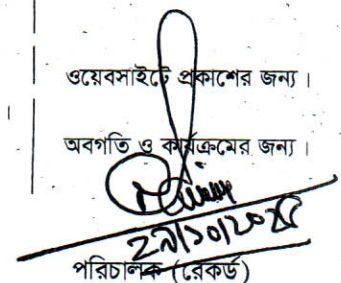 ওয়েবসাইটে প্রকাশের জন্য।
অবগতি ও কার্যক্রমের জন্য।
২৯/১০/২০২৫
পরিচালক (রেকর্ড)